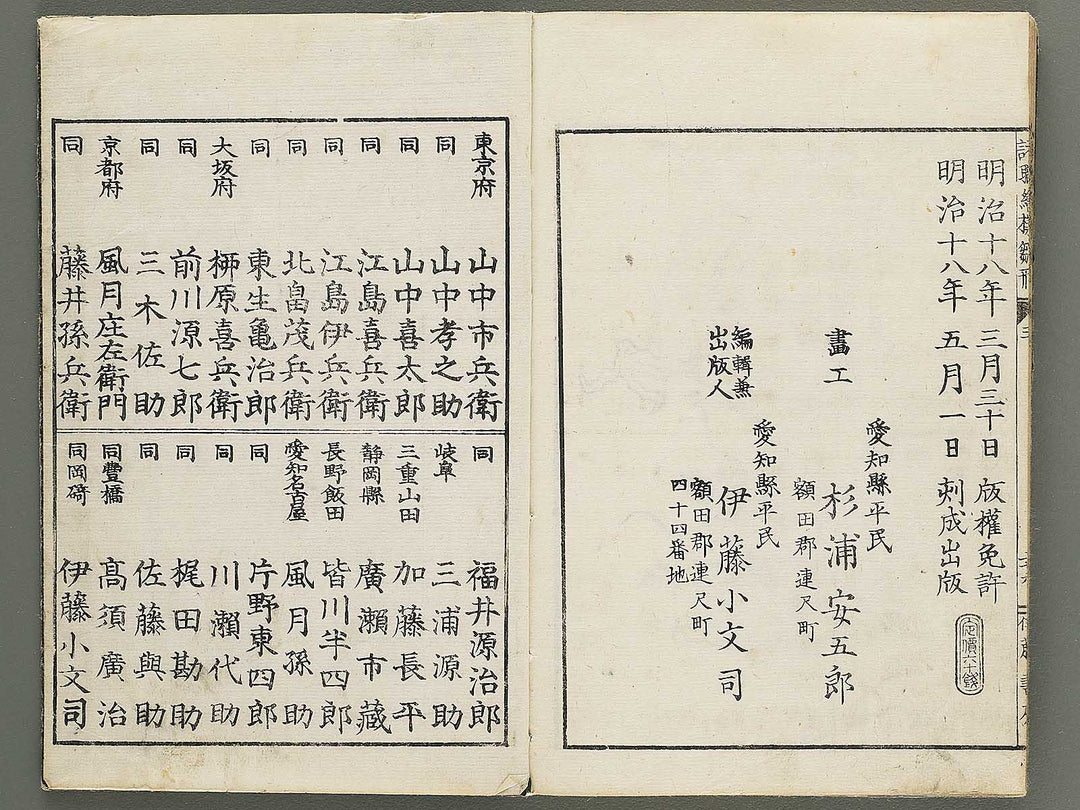 明治十八年三月三十日版權免許
明治十八年五月一日刺成出版
定價六十錢
愛知縣平民
畫工 杉浦安五郎
額田郡連尺町
愛知縣平民
編輯兼
出版人 伊藤小文司
額田郡連尺町
四十四番地
東京府 山中市兵衛
同 山中孝之助
同 山中喜太郎
同 江島喜兵衛
同 江島伊兵衛
同 北畠茂兵衛
同 東生亀治郎
大坂府 栁原喜兵衛
同 前川源七郎
同 三木佐助
京都府 風月庄左衛門
同 藤井孫兵衛
同 福井源治郎
岐阜 三浦源助
三重山田 加藤長平
静岡縣 廣瀨市藏
長野飯田 皆川半四郎
愛知名古屋 風月孫助
同 片野東四郎
同 川瀨代助
同 梶田勘助
同 佐藤與助
同豐橋 髙須廣治
同岡碕 伊藤小文司